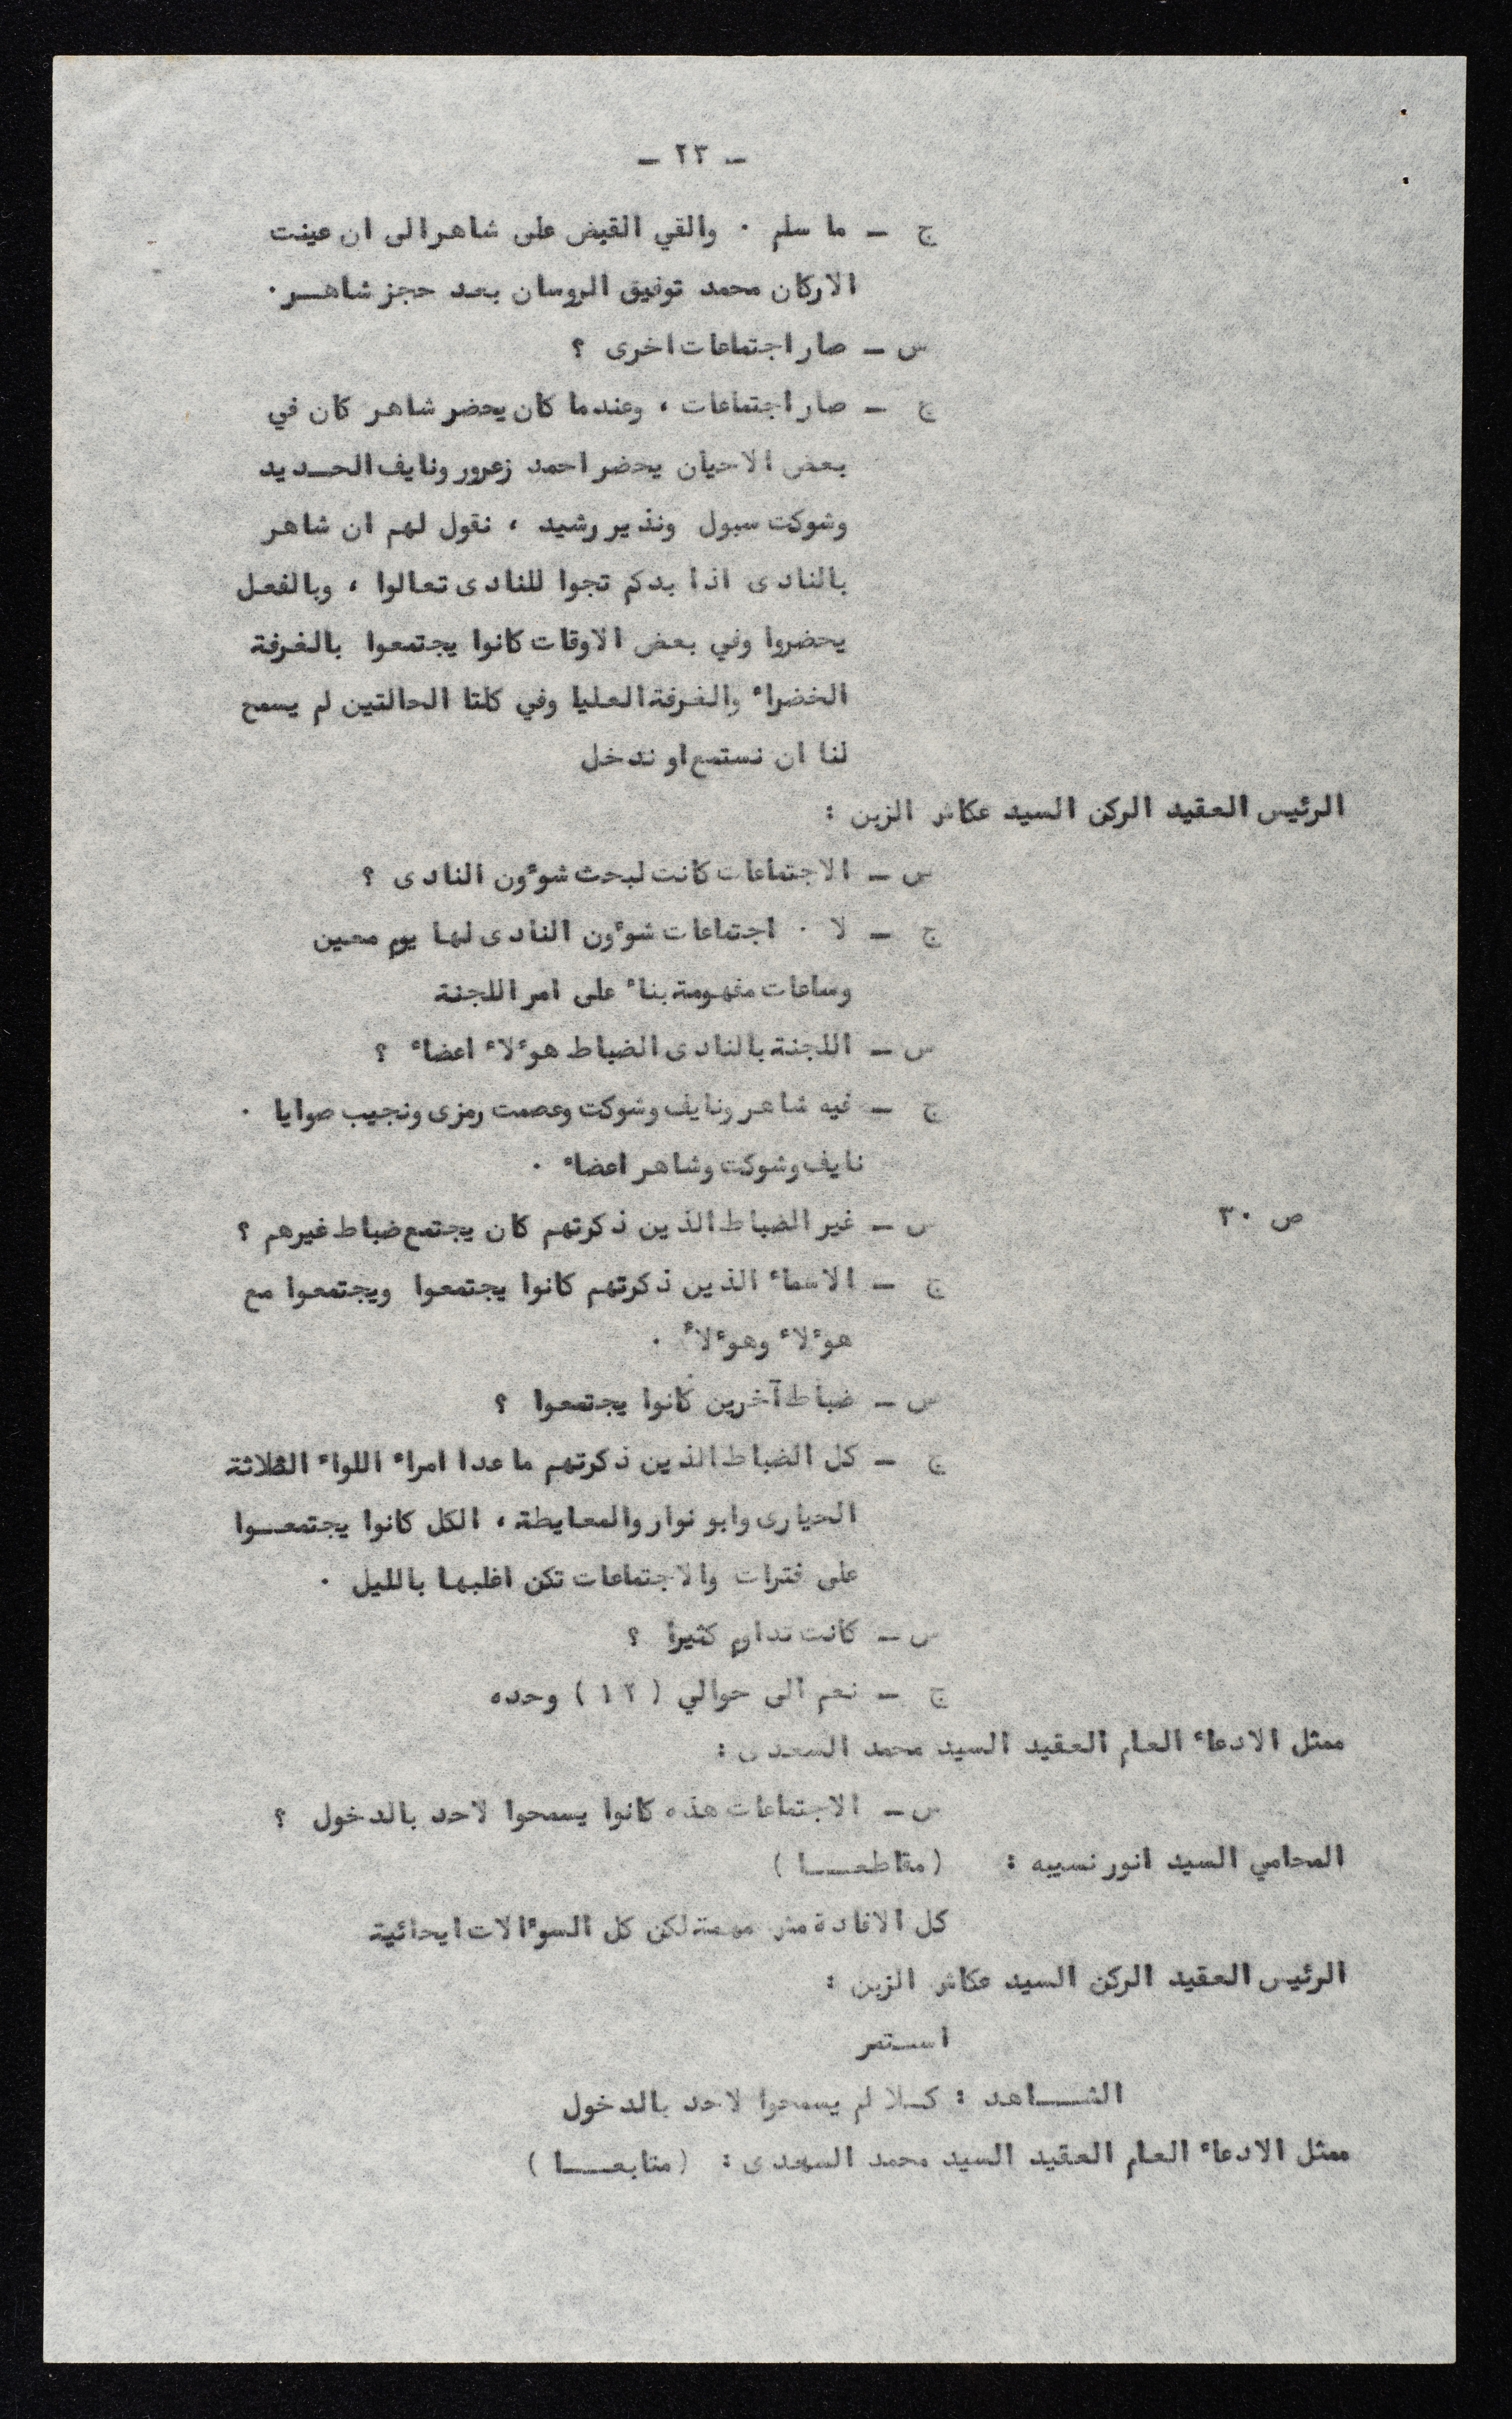 - ٢٣ -
ج - ما سلم . والقي القبض على شاهر الى ان عينت
الاركان محمد توفيق الروسان بعد حجز شاهــر.
س - صار اجتماعات اخرى ؟
ج - صار اجتماعات ، وعندما كان يحضر شاهر كان في
بعض الاحيان يحضر احمد زعرور ونايف الحــديد
وشوكت سبول ونذير رشيد ، نقول لهم ان شاهر
بالنادى اذا بدكم تجوا للنادى تعالوا ، وبالفعل
يحضروا وفي بعض الاوقات كانوا يجتمعوا بالغرفة
الخضراء والغرفة العليا وفي كلتا الحالتين لم يسمح
لنا ان نستمع او ندخل
الرئيس العقيد الركن السيد عكاش الزبن :
س - الاجتماعات كانت لبحث شوءون النادى ؟
ج - لا . اجتماعات شوءون النادى لها يوم معين
وساعات مفهومة بناء على امر اللجنة
س - اللجنة بالنادى الضباط هوءلاء اعضاء ؟
ج - فيه شاهر ونايف وشوكت وعصمت رمزى ونجيب صوايا .
نايف وشوكت وشاهر اعضاء .
ص ٣٠ س - غير الضباط الذين ذكرتهم كان يجتمع ضباط غيرهم ؟
ج - الاسماء الذين ذكرتهم كانوا يجتمعوا ويجتمعوا مع
هوءلاء وهوءلاء .
س - ضباط آخرين كانوا يجتمعوا ؟
ج - كل الضباط الذين ذكرتهم ما عدا امراء اللواء الثلاثة
الحيارى وابو نوار والمعايطة ، الكل كانوا يجتمعــوا
على فترات والاجتماعات تكن اغلبها بالليل .
س - كانت تداوم كثيرا ؟
ج - نعم الى حوالي ( ١٢ ) وحده
ممثل الادعاء العام العقيد السيد محمد السعدى :
س - الاجتماعات هذه كانوا يسمحوا لاحد بالدخول ؟
المحامي السيد انور نسيبه : ( مقاطعــا )
كل الافادة مهمة لكن كل السوءالات ايحائية
الرئيس العقيد الركن السيد عكاش الزبن :
استمر
الشــاهد : كـلا لم يسمحوا لاحد بالدخول
ممثل الادعاء العام العقيد السيد محمد السعدى : ( متابعــا )